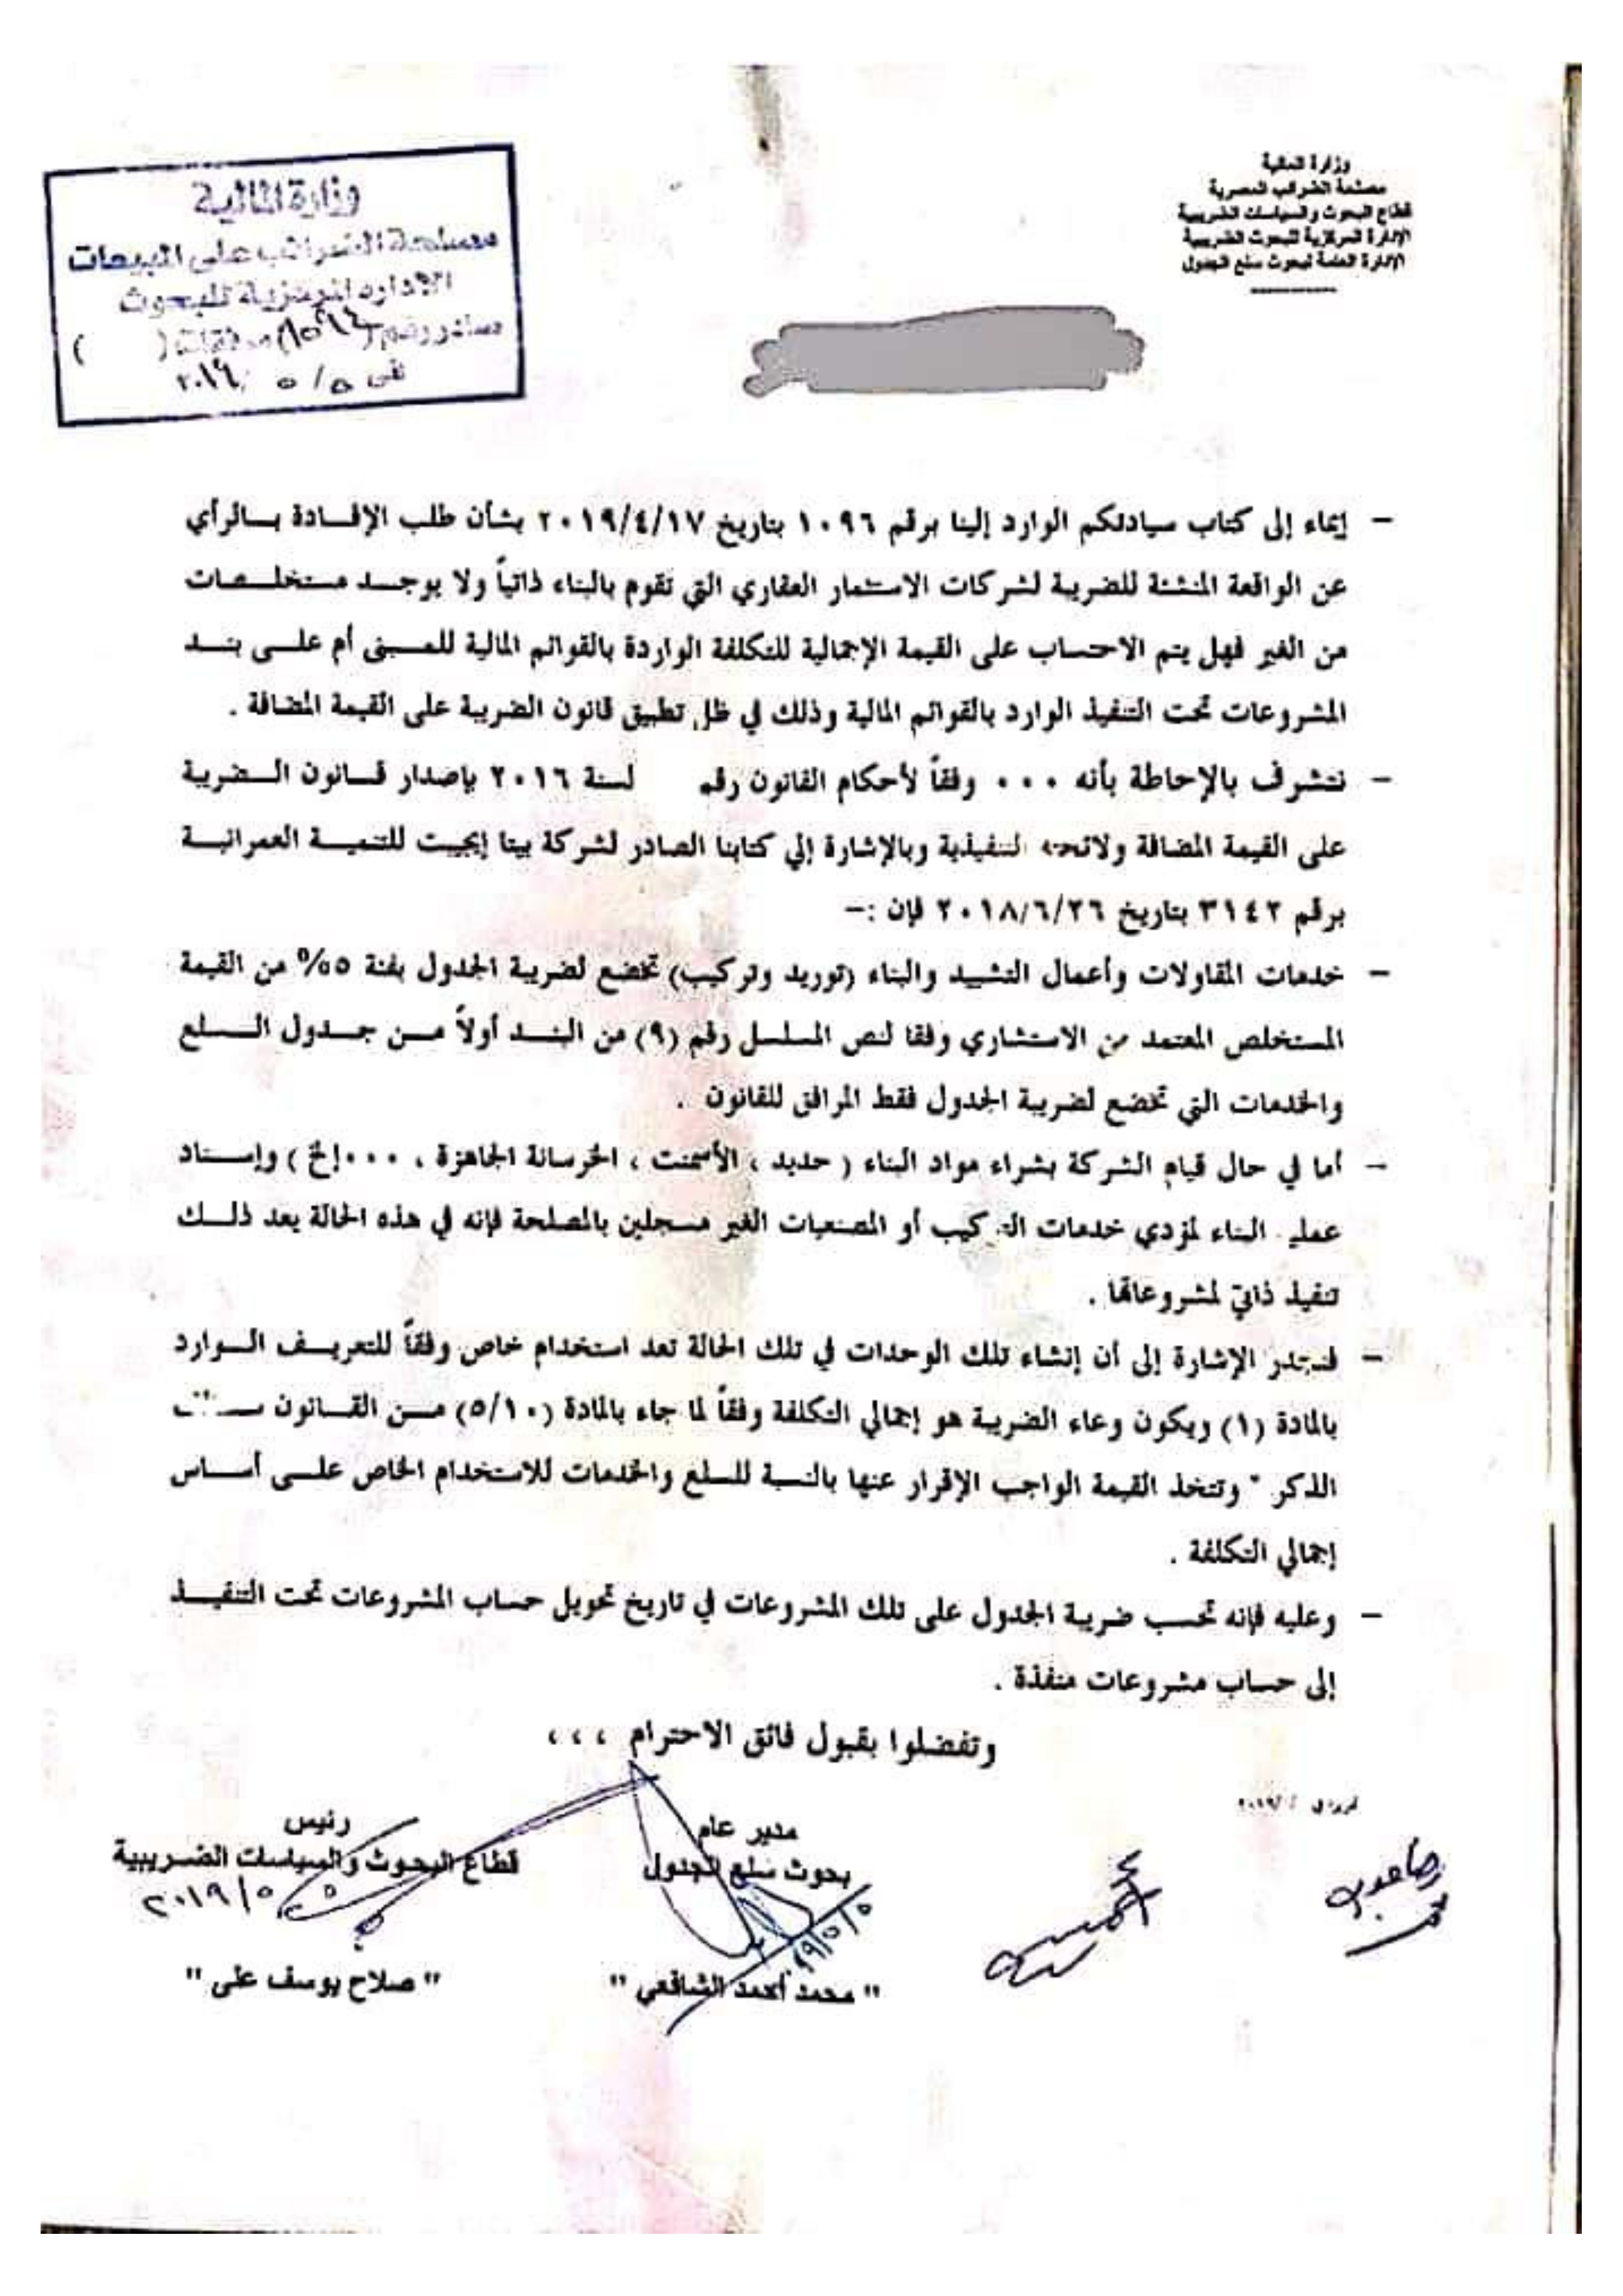 وزارة المالية
مصلحة الضرائب المصرية
قطاع البحوث والسياسات الضريبية
الإدارة المركزية للبحوث الضريبية
الإدارة العامة لبحوث سلع الجدول
وزارة المالية
مصلحة الضرائب على المبيعات
الاداره المركزية للبحوث
صادر رقم ( ) مرفقات ( )
فى ٥/٥ ٢٠١٩
– إيماء إلى كتاب سيادتكم الوارد إلينا برقم ١٠٩٦ بتاريخ ٢٠١٩/٤/١٧ بشأن طلب الإفادة بالرأي
عن الواقعة المنشئة للضريبة لشركات الاستثمار العقاري التي تقوم بالبناء ذاتياً ولا يوجد مستخلصات
من الغير فهل يتم الاحتساب على القيمة الإجمالية للتكلفة الواردة بالقوائم المالية للمبنى أم على بند
المشروعات تحت التنفيذ الوارد بالقوائم المالية وذلك في ظل تطبيق قانون الضريبة على القيمة المضافة .
– نتشرف بالإحاطة بأنه ٠٠٠ وفقاً لأحكام القانون رقم لسنة ٢٠١٦ بإصدار قانون الضريبة
على القيمة المضافة ولائحته التنفيذية وبالإشارة إلي كتابنا الصادر لشركة بيتا إيجيبت للتنمية العمرانية
برقم ٣١٤٢ بتاريخ ٢٠١٨/٦/٢٦ فإن :–
– خدمات المقاولات وأعمال التشييد والبناء (توريد وتركيب) تخضع لضريبة الجدول بفئة ٥% من القيمة
المستخلص المعتمد من الاستشاري وفقا لنص المسلسل رقم (٩) من البند أولاً من جدول السلع
والخدمات التي تخضع لضريبة الجدول فقط المرافق للقانون .
– أما في حال قيام الشركة بشراء مواد البناء ( حديد ، الأسمنت ، الخرسانة الجاهزة ، ٠٠٠إلخ ) وإسناد
عملية البناء لمؤدي خدمات التركيب أو المصنعيات الغير مسجلين بالمصلحة فإنه في هذه الحالة يعد ذلك
تنفيذ ذاتي لمشروعاتها .
– فتجدر الإشارة إلى أن إنشاء تلك الوحدات في تلك الحالة تعد استخدام خاص وفقاً للتعريف الوارد
بالمادة (١) ويكون وعاء الضريبة هو إجمالي التكلفة وفقاً لما جاء بالمادة (٥/١٠) من القانون
الذكر " وتتخذ القيمة الواجب الإقرار عنها بالنسبة للسلع والخدمات للاستخدام الخاص على أساس
إجمالي التكلفة .
– وعليه فإنه تحسب ضريبة الجدول على تلك المشروعات في تاريخ تحويل حساب المشروعات تحت التنفيذ
إلى حساب مشروعات منفذة .
وتفضلوا بقبول فائق الاحترام ،،،
مدير عام
بحوث سلع الجدول
١٩/٥/٥
" محمد أحمد الشافعي "
رئيس
قطاع البحوث والسياسات الضريبية
٢٠١٩/٥/٥
" صلاح يوسف على "